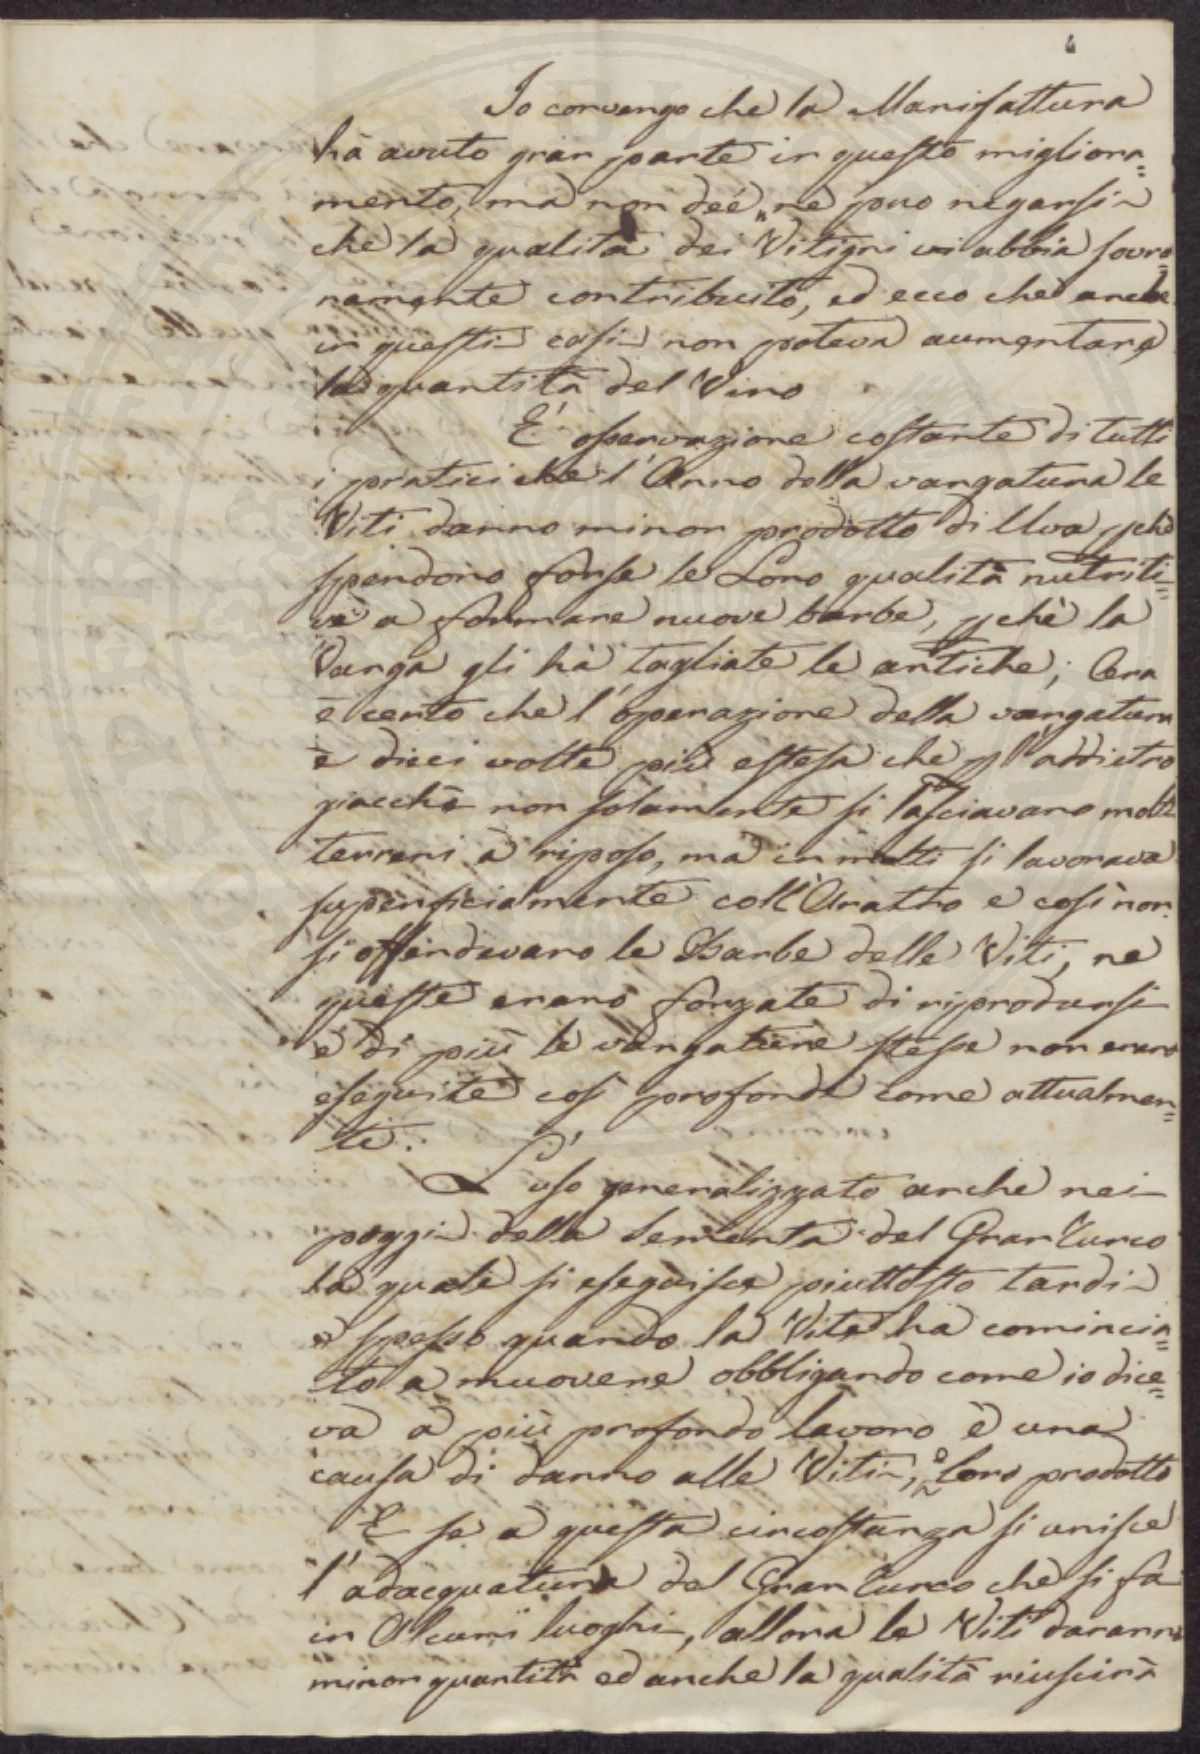 4
Io convengo che la Manifattura
hà avuto gran parte in questo migliora=
mento, mà non deé, ne puo negarsi
che là qualità dei Vitigni vi abbia sovra=
namente contribuito, ed ecco che anche
in questi casi non poteva aumentare
la quantità del Vino
E' osservazione costante di tutti
i pratici che l'Anno della vangatura le
Viti danno minor prodotto di Uva pche
spendono forse le Loro qualità nutriti=
ve a formare nuove barbe, pchè la
Vanga gli hà tagliate le antiche; Ora
è certo che l'operazione della vangatura
è dieci volte più estesa che p l'addietro
giacchè non solamente si lasciavano molti
terreni à riposo, ma in molti si lavorava
superficialmente coll'Aratro e così non
si offendevano le Barbe delle Viti, ne
queste erano forzate di riprodursi
e di più le vangature stesse non erano
eseguite così profonde come attualmen=
te.
L'uso generalizzato anche nei
poggi della sementa del Gran Turco
la quale si eseguisce piuttosto tardi
e spesso quando la Vite ha comincia=
to a muovere obbligando come io dice=
va à più profondo lavoro è una
causa di danno alle Viti, e loro prodotto
E se a questa circostanza si unisce
l'adacquatura del Gran Turco che si fa
in Alcuni luoghi, allora le Viti daranno
minor quantità ed anche la qualità riuscirà